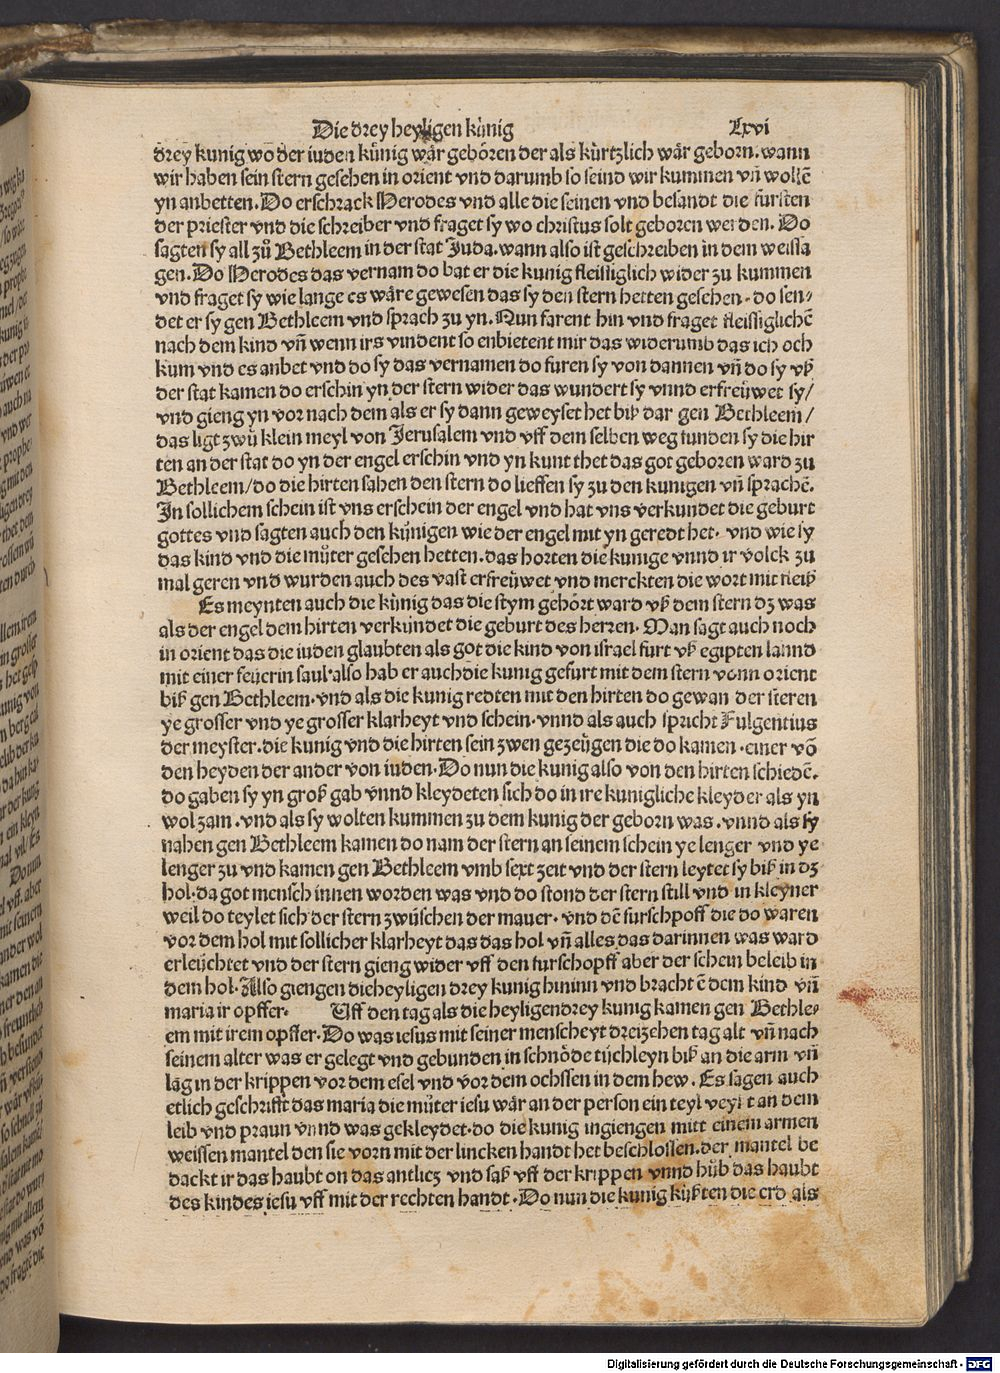 Die drey heyligen künig Lxvi
drey kunig wo der iuden künig wär geboren der als kürtzlich wär geborn. wann
wir haben sein stern gesehen in orient vnd darumb so seind wir kummen vñ wollẽ
yn anbetten. Do erschrack Herodes vnd alle die seinen vnd besandt die fürsten
der priester vnd die schreiber vnd fraget sy wo christus solt geboren werden. Do
sagten sy all zů Bethleem in der stat Juda. wann also ist geschreiben in dem weissa
gen. Do Herodes das vernam do bat er die kunig fleissiglich wider zu kummen
vnd fraget sy wie lange es wäre gewesen das sy den stern hetten gesehen. do sen⸗
det er sy gen Bethleem vnd sprach zu yn. Nun farent hin vnd fraget fleissiglichẽ
nach dem kind vñ wenn irs vindent so enbietent mir das widerumb das ich och
kum vnd es anbet vnd do sy das vernamen do furen sy von dannen vñ do sy vß
der stat kamen do erschin yn der stern wider das wundert sy vnnd erfreüwet sy/
vnd gieng yn vor nach dem als er sy dann geweyset het biß dar gen Bethleem/
das ligt zwü klein meyl von Jerusalem vnd vff dem selben weg funden sy die hir
ten an der stat do yn der engel erschin vnd yn kunt thet das got geboren ward zu
Bethleem/do die hirten sahen den stern do lieffen sy zu den kunigen vñ sprachẽ.
In sollichem schein ist vns erschein der engel vnd hat vns verkundet die geburt
gottes vnd sagten auch den künigen wie der engel mit yn geredt het. vnd wie sy
das kind vnd die můter gesehen hetten. das horten die kunige vnnd ir volck zu
mal geren vnd wurden auch des vast erfreüwet vnd merckten die wort mit fleiß
Es meynten auch die künig das die stym gehört ward vß dem stern dz was
als der engel dem hirten verkündet die geburt des herren. Man sagt auch noch
in orient das die iuden glaubten als got die kind von israel furt vß egipten lannd
mit einer feüerin saul. also hab er auch die kunig gefurt mit dem stern vonn orient
biß gen Bethleem. vnd als die kunig redten mit den hirten do gewan der steren
ye grosser vnd ye grosser klarheyt vnd schein. vnnd als auch spricht Fulgentius
der meyster. die kunig vnd die hirten sein zwen gezeügen die do kamen. einer võ
den heyden der ander von iuden. Do nun die kunig also von den hirten schiedẽ.
do gaben sy yn groß gab vnnd kleydeten sich do in ire kunigliche kleyder als yn
wol zam. vnd als sy wolten kummen zu dem kunig der geborn was. vnnd als sy
nahen gen Bethleem kamen do nam der stern an seinem schein ye lenger vnd ye
lenger zu vnd kamen gen Bethleem vmb sext zeit vnd der stern leytet sy biß in dz
hol. da got mensch innen worden was vnd do stond der stern still vnd in kleyner
weil do teylet sich der stern zwüschen der mauer. vnd dẽ fürschpoff die do waren
vor dem hol mit sollicher klarheyt das das hol vñ alles das darinnen was ward
erleüchtet vnd der stern gieng wider vff den furschopff aber der schein beleib in
dem hol. Also giengen die heyligen drey kunig hininn vnd bracht ẽ dem kind vñ
maria ir opffer. Vff den tag als die heyligen drey kunig kamen gen Bethle⸗
em mit irem opffer. Do was iesus mit seiner menscheyt dreizehen tag alt vñ nach
seinem alter was er gelegt vnd gebunden in schnöde tüchleyn biß an die arm vñ
lag in der krippen vor dem esel vnd vor dem ochssen in dem hew. Es sagen auch
etlich geschrifft das maria die můter iesu wär an der person ein teyl veyst an dem
leib vnd praun vnnd was gekleydet. do die kunig ingiengen mitt einem armen
weissen mantel den sie vorn mit der lincken handt het beschlossen. der mantel be
dackt ir das haubt on das antlicz vnd saß vff der krippen vnnd hůb das haubt
des kindes iesu vff mit der rechten handt. Do nun die kunig küßten die erd als
Digitalisierung gefördert durch die Deutsche Forschungsgemeinschaft - DFG